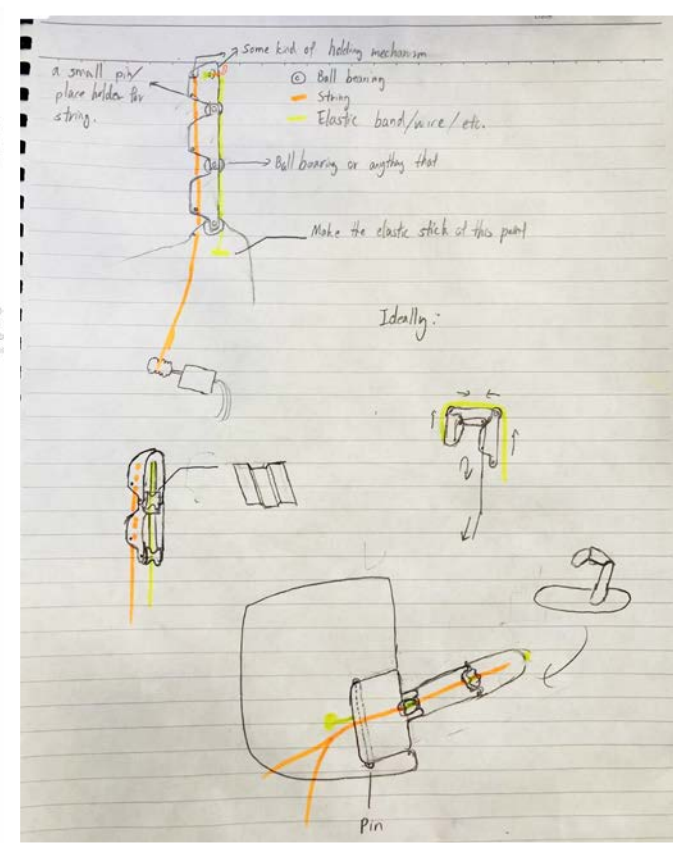 some kind of holding mechanism
a small pin/
place holder for
string.
Ball bearing
String
Elastic band/wire/etc.
Ball bearing or anything that
Make the elastic stick at this point
Ideally:
Pin